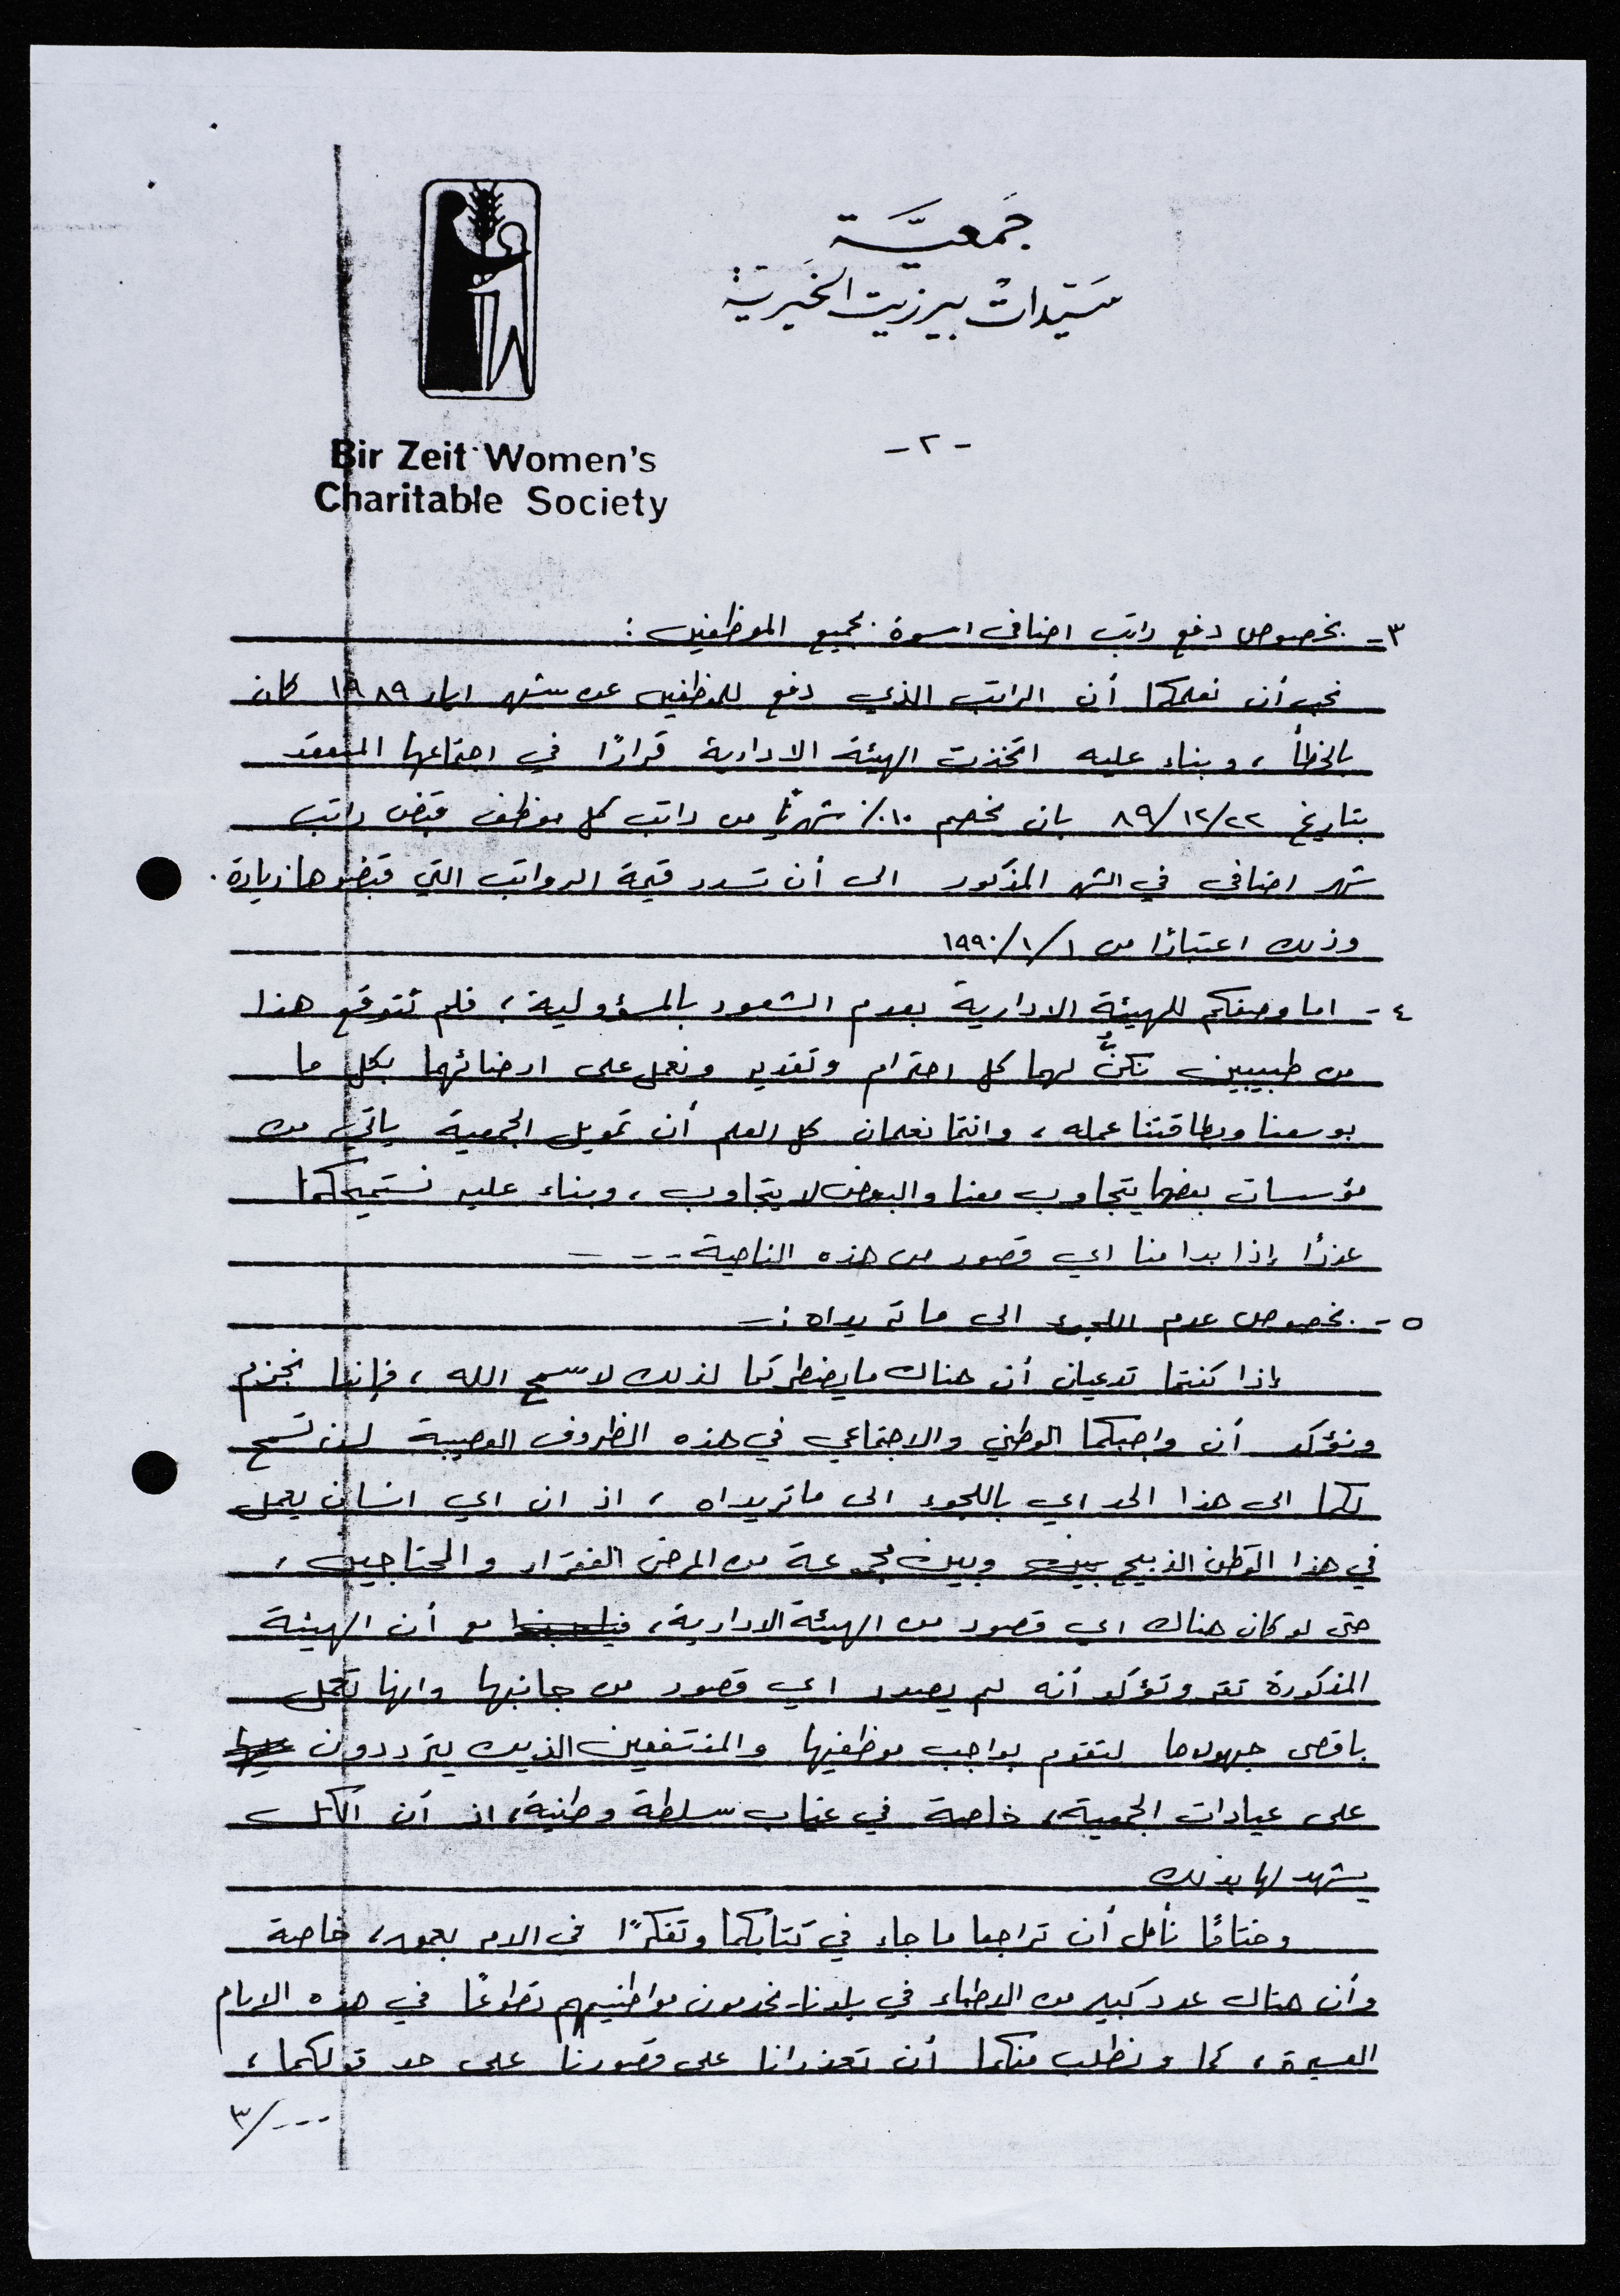 جمعية
سيدات بيرزيت الخيرية
Bir Zeit Women's
Charitable Society
- ٢ -
٣- بخصوص دفع راتب اضافي اسوة بجميع الموظفين :
نحب أن نعلمكما أن الراتب الذي دفع للموظفين عن شهر ايار ١٩٨٩ كان
بالخطأ ، وبناء عليه اتخذت الهيئة الادارية قرارًا في اجتماعها المنعقد
بتاريخ ٨٩/١٢/٢٢ بان يخصم ١٠٪ شهريًا من راتب كل موظف قبض راتب
شهر اضافي في الشهر المذكور الى أن تسدد قيمة الرواتب التي قبضوها زيادة .
وذلك اعتبارًا من ١٩٩٠/١/١
٤ - اما وصفكم للهيئة الادارية بعدم الشعور بالمسؤولية ، فلم نتوقع هذا
من طبيبين نكنُّ لهما كل احترام وتقدير ونعمل على ارضائهما بكل ما
بوسعنا وبطاقتنا عمله ، وانتما تعلمان كل العلم أن تمويل الجمعية ياتي من
مؤسسات بعضها يتجاوب معنا والبعض لا يتجاوب ، وبناء عليه نستميحكما
عذرًا إذا بدا منا اي قصور من هذه الناحية - - - -
٥ - بخصوص عدم اللجوء الى ما تريداه : -
إذا كنتما تدعيان أن هناك ما يضطركما لذلك لا سمح الله ، فإننا نجزم
ونؤكد أن واجبكما الوطني والاجتماعي في هذه الظروف العصيبة لن تسمح
لكما الى هذا الحد اي باللجوء الى ما تريداه ، اذ ان اي انسان يعمل
في هذا الوطن الذبيح بين وبين مجموعة من المرضى الفقراء والمحتاجين ،
حتى لو كان هناك اي قصور من الهيئة الادارية ، مع أن الهيئة
المذكورة تقر وتؤكد أنه لم يصدر اي قصور من جانبها وانها تعمل
باقصى جهودها لتقوم بواجب موظفيها والمنتفعين الذين يترددون عليها
على عيادات الجمعية ، خاصة في غياب سلطة وطنية ، اذ أن الكل
يشهد لها بذلك
وختامًا نأمل أن تراجعا ما جاء في كتابكما وتفكرًا في الامر بعمق ، خاصة
وأن هناك عدد كبير من الاطباء في بلدنا يخدمون مواطنيهم تطوعًا في هذه الايام
العسيرة ، كما ونطلب منكما أن تعذرانا على قصورنا على حد قولكما ،
٣/---